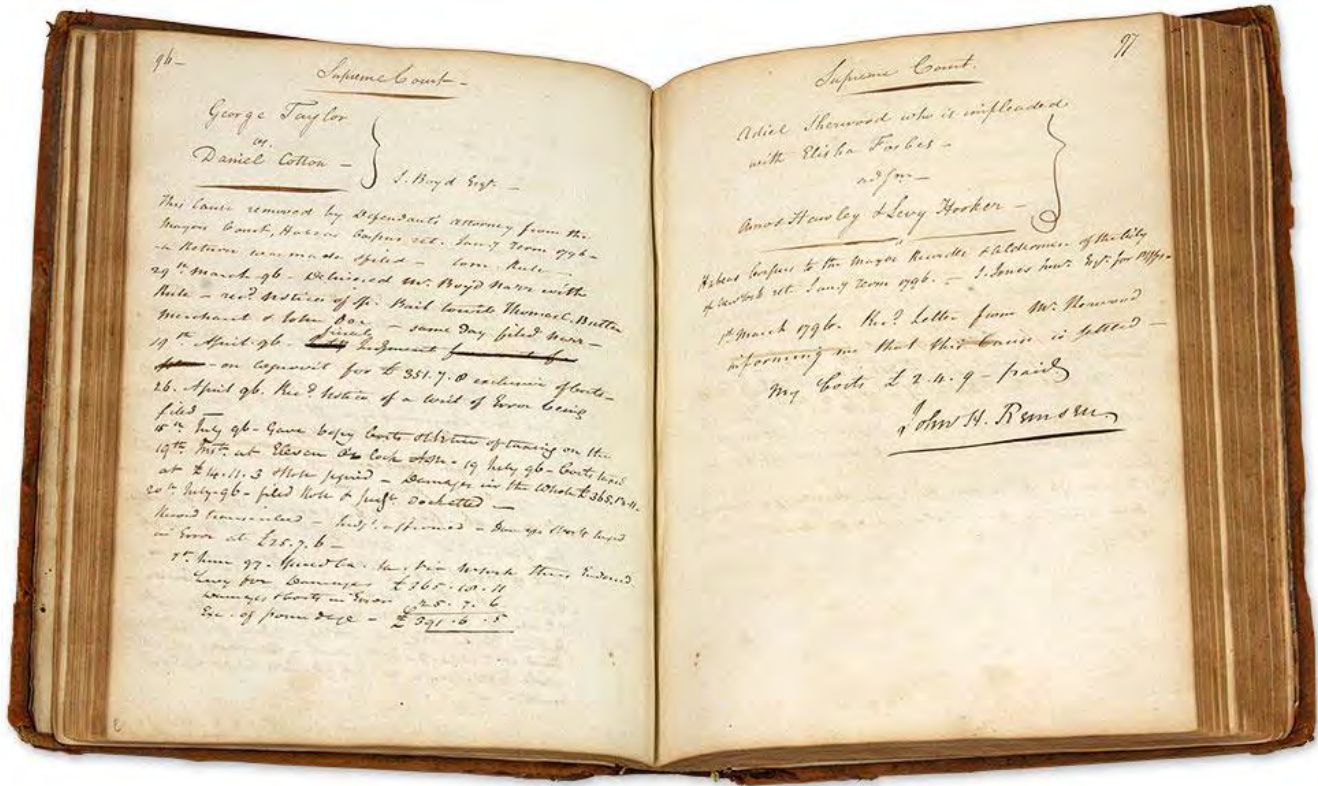 96 -
Supreme Court -
George Taylor
vs.
Daniel Cotton -
S. Boyd Esqr. -
This Cause removed by Defendants attorney from the
Mayors Court, Habeas Corpus ret. Jany Term 1796 -
a Return was made & filed - Com. Rule -
29th March 96 - Delivered Mr. Boyd Narr with
Rule - recd. Notice of sp. Bail to wit Thomas C. Butler
Merchant & John Doe - same day filed Narr -
19th April 96. - Judgment
- on Cognovit for £351.7.8 exclusive of Costs -
26. April 96. Recd. Notice of a Writ of Error being
filed -
15th July 96 - Gave Copy Costs & Notice of taxing on the
19th Inst. at Eleven O Clock A.M. - 19 July 96 - Costs taxed
at £14.11.3 & Role signed - Damages in the Whole £365.18.11.
20th July - 96 - filed Role & Judgt. Docketted -
Record transcribed - Judgt. affirmed - Damages & Costs taxed
in Error at £25.7.6 -
7th June 97. Ca. Sa. New York thus Endorsed
Levy for Damages £365.18.11
Damages & Costs in Error 25.7.6
Exc. of poundage - £391.6.5
97
Supreme Court.
Adiel Sherwood who is impleaded
with Elisha Forbes -
ads -
Amos Hawley & Levy Hooker -
Habeas Corpus to the Mayor Recorder & Aldermen of the City
of New York ret. Jany Term 1796. - S. Jones Junr. Esqr. for Pltffs -
1st March 1796. Recd. Letter from Mr.
informing me that this Cause is settled -
My Costs £2.4.9 - paid
John H. Remsen.